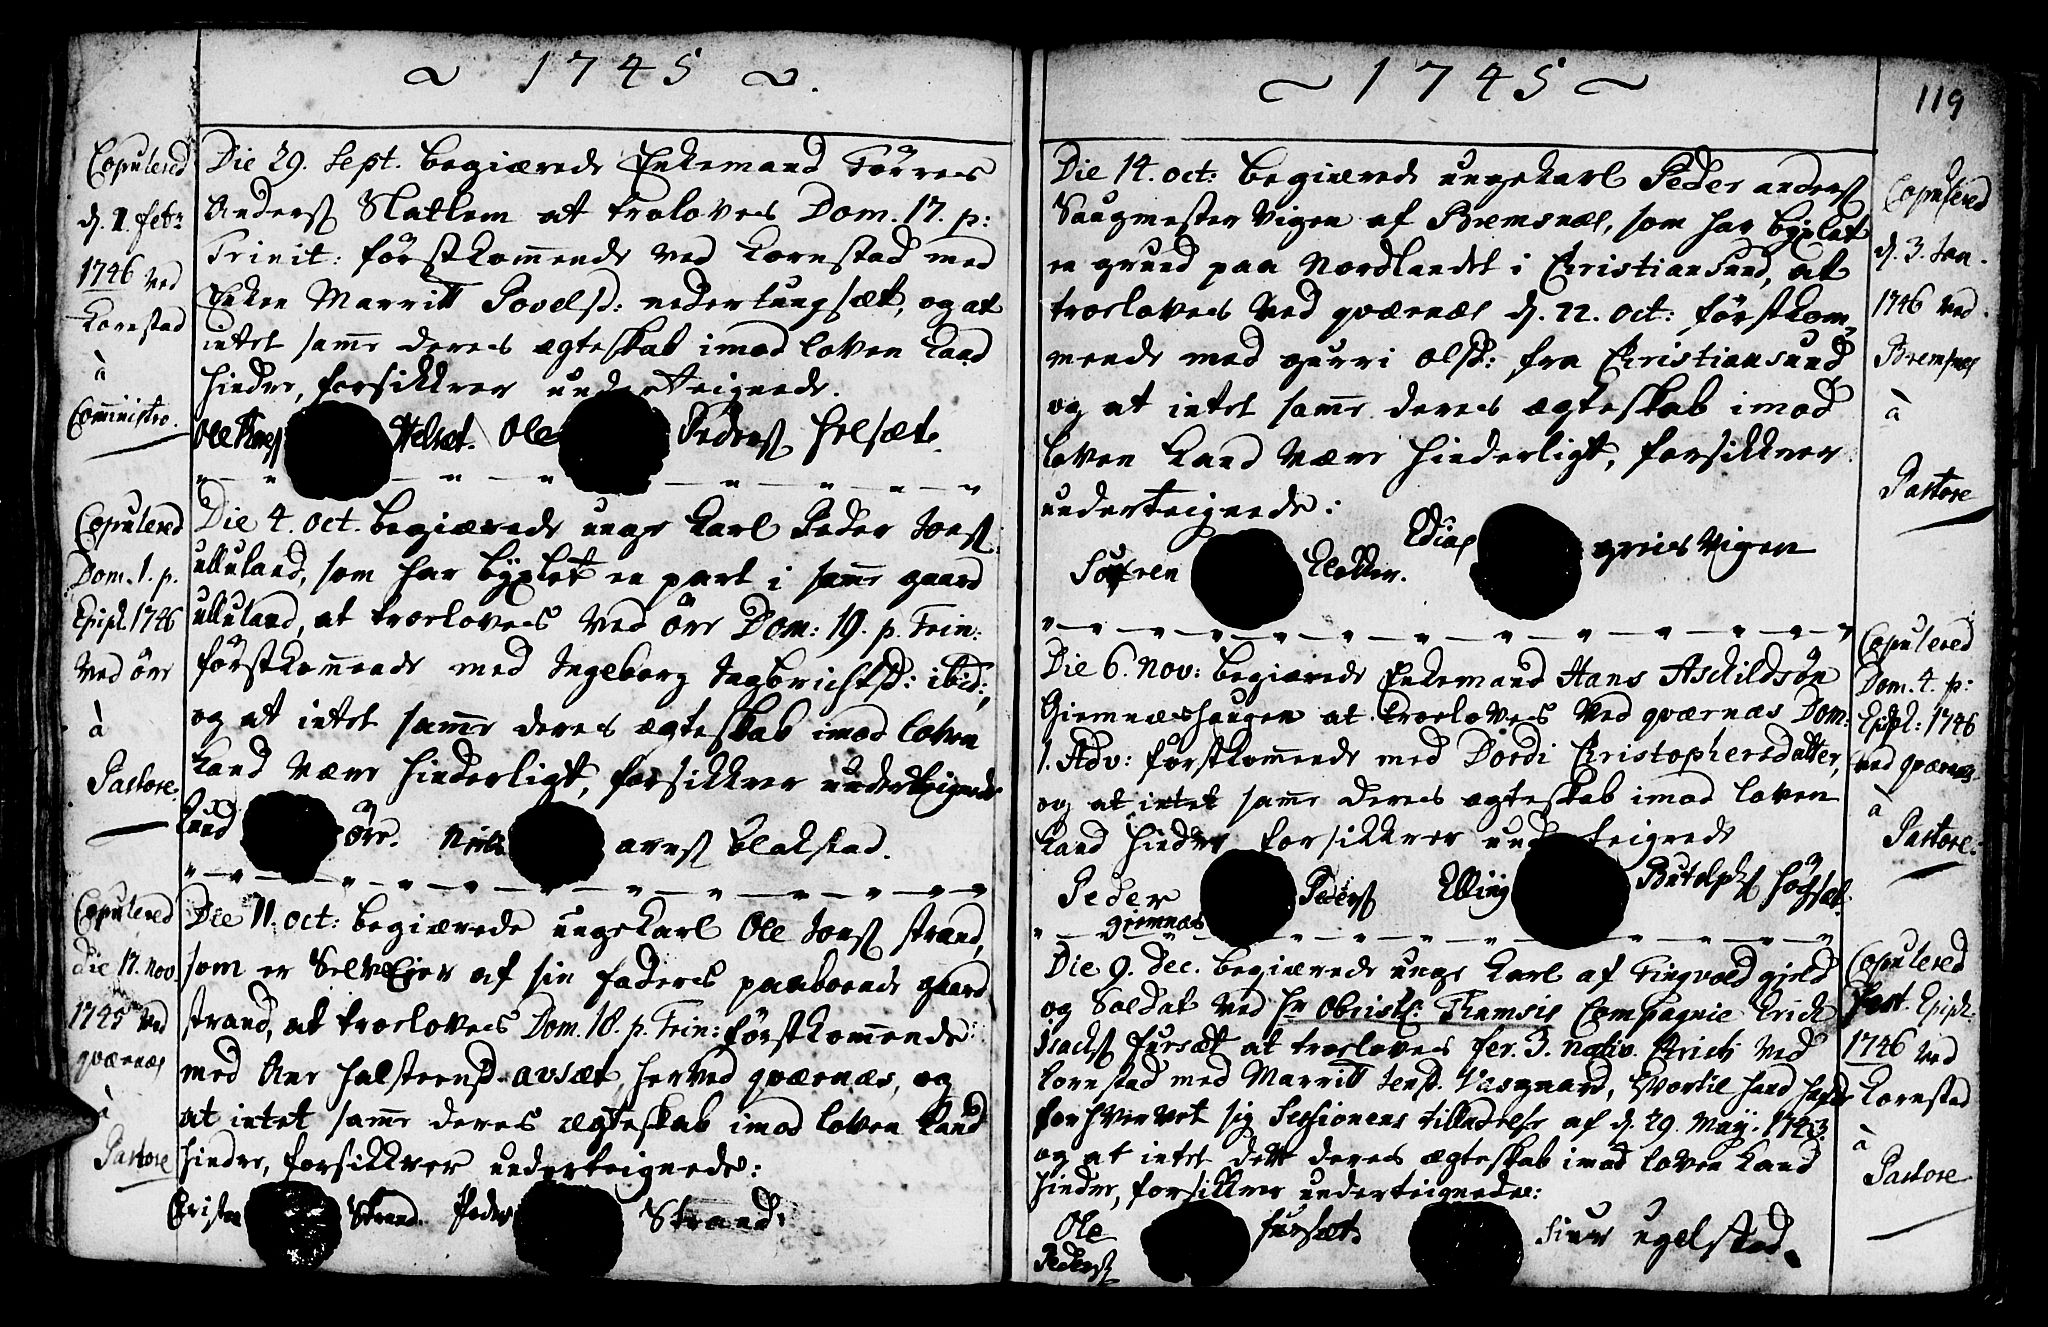 ~ 1745 ~.
Copulered
d. 1 febr
1746 ved
Kornstad
à
Comministro.
Die 29. Sept. begiærede Enkemand Törres
Anders Slatlem at troloves Dom. 17. p:
Trinit: förstkom̄ende ved Kornstad med
Enken Marritt Povelsd: nedertungsæt, og at
intet sam̄e deres ægteskab imod loven kand
hindre, forsikkrer underteignede.
Ole Helsæt. Ole Peders helsæt.
Copulered
Dom. 1. p.
Epiph. 1746
ved öre
à
Pastore.
Die 4. Oct. begiærede unge Karl Peder Jons
ulluland, som har byxlet en part i sam̄e gaard
ulluland, at troeloves ved öre Dom: 19. p. Trin:
förstkom̄ende med Ingeborg Ingbrichtsd: ibid:,
og at intet sam̄e deres ægteskab imod loven
kand være hinderligt, forsikkrer underteignede
Knud öre. Niels arns blakstad.
Copulered
die 17. nov
1745 ved
qværnæs
à
Pastore
Die 11. Oct: begiærede ungekarl Ole Jons strand,
som er Selvejer af sin faders paaboende gaard
strand, at troeloves Dom. 18. p. Trin: förstkom̄ende
med Ane halsteensd. avsæt, her ved qværnæs, og
at intet sam̄e deres ægteskab imod loven kand
hindre, forsikkrer underteignede:
Christen Strand. Peder Strand.
~ 1745 ~
119
Die 14. oct: begiærede ungekarl Peder anders
Saugmester Vigen af Bremsnæs, som har byxlet
en grund paa Nordlandet i Christiansund, at
troeloves ved qværnæs d. 22. oct: förstkom-
mende med gurri olsd: fra Christiansund
og at intet sam̄e deres ægteskab imod
loven kand være hinderligt, forsikkrer
underteignede:
Sören Elias gries Vigen
Copulered
d. 3. Jan.
1746 ved
Bremsnæs
à
Pastore
Die 6. Nov: begiærede Enkemand Hans Aschildsön
Giemnæshaugen at troeloves ved qværnæs Dom.
1. Adv: förstkom̄ende med Dordi Christophersdatter,
og at intet sam̄e deres ægteskab imod loven
kand hindre forsikkrer underteignede
Peder Peders Elling Butolphs högsæt.
giemnæs
Copulered
Dom. 4. p:
Epiph: 1746
ved qværnæs
à
Pastore.
Die 9. Dec. begiærede unge Karl af Tingvold gield
og Soldat ved Hr Obristl: Thamsis Compagnie Erick
Isachs fursæt at troeloves fer. 3. nativ. Christi ved
Kornstad med Marritt Jensd. Vasgaard, hvortil hand haver
forhvervet sig Sessionens tilladelse af d. 29. Maij. 1743.
og at intet dette deres ægteskab imod loven kand
hindre, forsikkrer underteignede:
Ole fursæt Siur ugelstad.
Peders
Copulered
Fest. Epiph:
1746 ved
Kornstad
à
Pastore